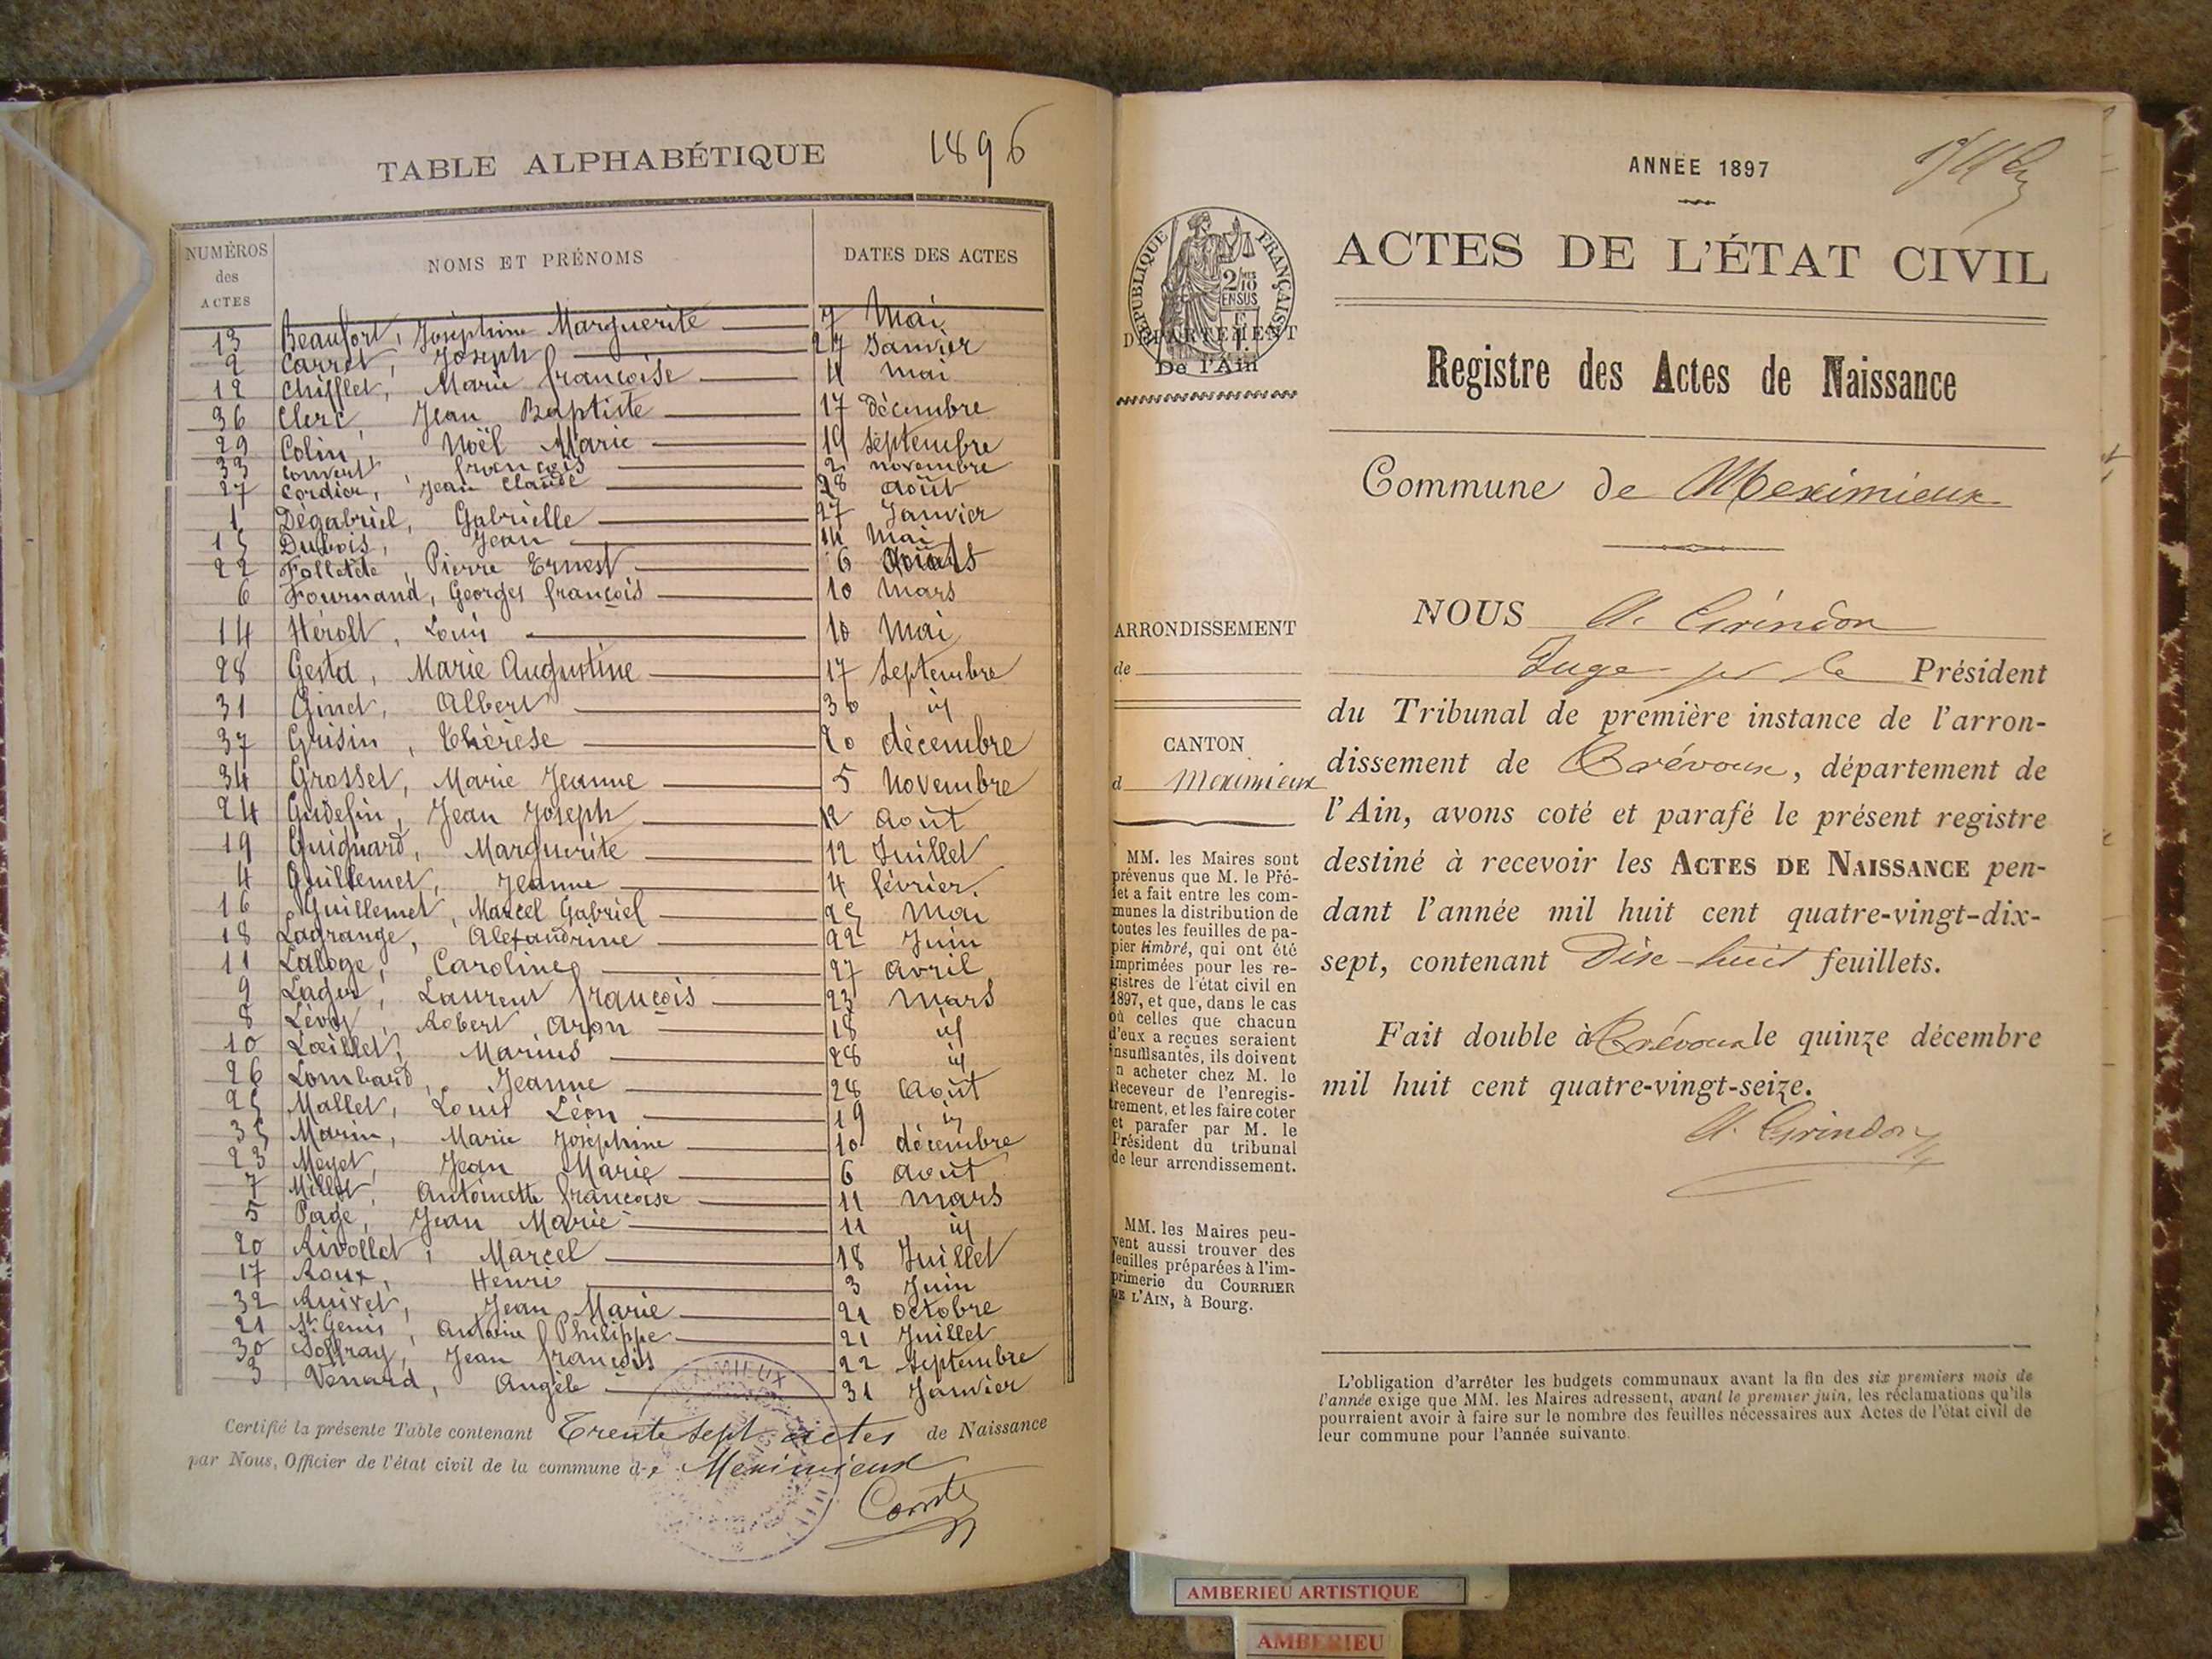 TABLE ALPHABÉTIQUE 1896
NUMÉROS des ACTES NOMS ET PRÉNOMS DATES DES ACTES
13 Beaufort, Joséphine Marguerite 7 Mai
2 Carret, Joseph 27 Janvier
12 Chifflet, Marie françoise 4 mai
36 Clerc, Jean Baptiste 17 décembre
29 Colin, Noël Marie 19 septembre
33 Convert, françois 2 novembre
27 Cordier, Jean Claude 28 août
1 Dégabriel, Gabrielle 27 Janvier
15 Dubois, Jean 14 Mai
22 Folletête, Pierre Ernest 6
6 Fournand, Georges françois 10 mars
14 Hérolt, Louis 10 Mai
28 Gesta, Marie Augustine 17 septembre
31 Ginet, Albert 30 id
37 Grisin, Thérèse 20 décembre
34 Grosset, Marie Jeanne 5 Novembre
24 Gudefin, Jean Joseph 12 Août
19 Guignard, Marguerite 12 Juillet
4 Guillemet, Jeanne 4 février
16 Guillemet, Marcel Gabriel 25 Mai
18 Lagrange, Alexandrine 22 Juin
11 Laloge, Caroline 27 avril
9 Lager, Laurent françois 23 Mars
8 Lévy, Robert Aron 18 id
10 Lœillet, Marius 28 id
26 Lombard, Jeanne 28 Août
25 Mallet, Louis Léon 19 id
35 Marin, Marie Joséphine 10 décembre
23 Meyet, Jean Marie 6 août
7 Millet, Antoinette françoise 11 mars
5 Page, Jean Marie 11 id
20 Rivollet, Marcel 18 Juillet
17 Roux, Henri 3 Juin
32 Ruivet, Jean Marie 21 octobre
21 St Genis, Antoine Philippe 21 Juillet
30 Soffray, Jean françois 22 septembre
3 Venard, Angèle 31 Janvier
Certifié la présente Table contenant Trente sept actes de Naissance
par Nous, Officier de l'état civil de la commune de Meximieux
Comte
ANNÉE 1897
RÉPUBLIQUE FRANÇAISE
DÉPARTEMENT
De l'Ain
ARRONDISSEMENT
de
CANTON
d Meximieux
MM. les Maires sont
prévenus que M. le Pré-
fet a fait entre les com-
munes la distribution de
toutes les feuilles de pa-
pier timbré, qui ont été
imprimées pour les re-
gistres de l'état civil en
1897, et que, dans le cas
où celles que chacun
d'eux a reçues seraient
insuffisantes, ils doivent
n acheter chez M. le
Receveur de l'enregis-
trement, et les faire coter
et parafer par M. le
Président du tribunal
de leur arrondissement.
MM. les Maires peu-
vent aussi trouver des
feuilles préparées à l'im-
primerie du COURRIER
DE L'AIN, à Bourg.
ACTES DE L'ÉTAT CIVIL
Registre des Actes de Naissance
Commune de Meximieux
NOUS A. Grindon
Juge pr le Président
du Tribunal de première instance de l'arron-
dissement de Trévoux, département de
l'Ain, avons coté et parafé le présent registre
destiné à recevoir les ACTES DE NAISSANCE pen-
dant l'année mil huit cent quatre-vingt-dix-
sept, contenant Dix-huit feuillets.
Fait double à Trévoux le quinze décembre
mil huit cent quatre-vingt-seize.
A. Grindon
L'obligation d'arrêter les budgets communaux avant la fin des six premiers mois de
l'année exige que MM. les Maires adressent, avant le premier juin, les réclamations qu'ils
pourraient avoir à faire sur le nombre des feuilles nécessaires aux Actes de l'état civil de
leur commune pour l'année suivante.
AMBERIEU ARTISTIQUE
AMBERIEU